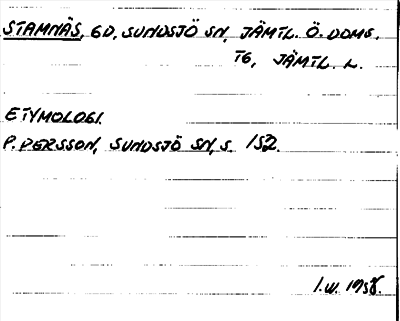 STAMNÄS, GD, SUNDSJÖ SN, JÄMTL. Ö. DOMS.
TG, JÄMTL. L.
ETYMOLOGI.
P. PERSSON, SUNDSJÖ SN, S. 152.
I.W. 1958.